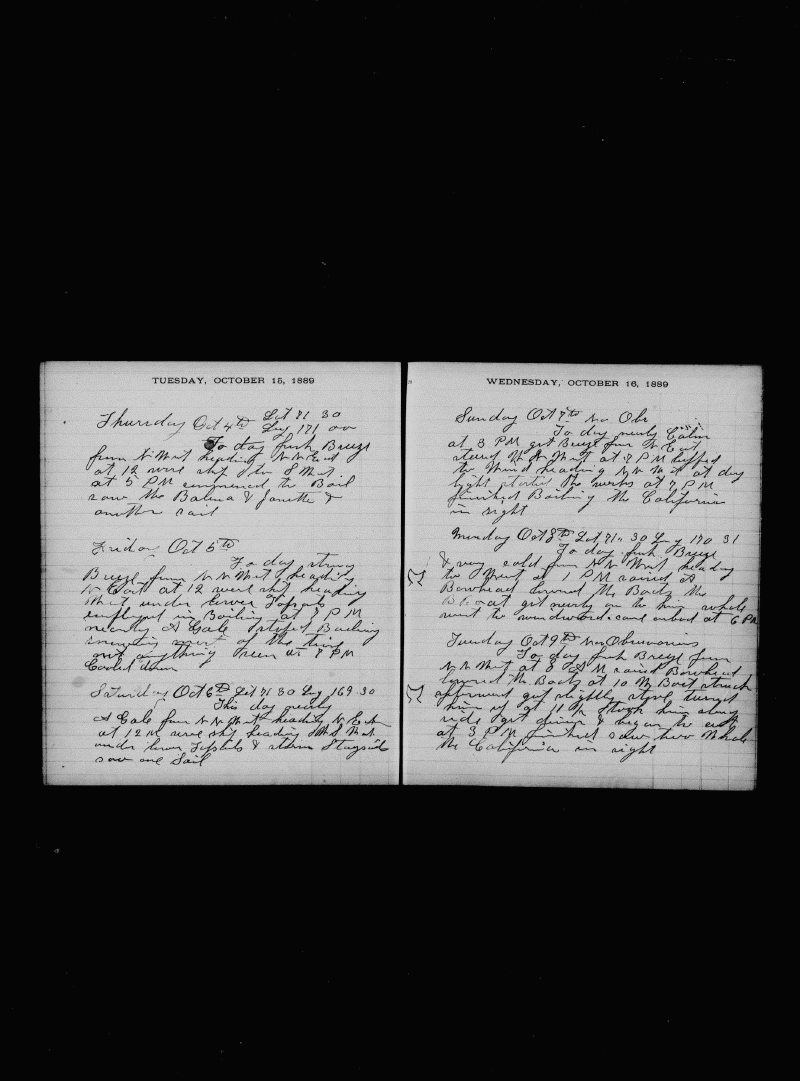 TUESDAY, OCTOBER 15, 1889
Thursday Oct 4th Lat 71 30
Lng 171 00
To day fresh Breeze
from N. West heading N N East
at 12 wore ship to S West.
at 5 PM commenced to Boil
saw the Balena & Janette &
another sail
Friday Oct 5th
To day strong
Breeze from N N West heading
N East at 12 wore ship heading
West under lower Topsails
employed in Boiling at 3 PM
nearly A Gale stoped Boiling
snowing most of the time
not anything seen at 7 PM
Cooled down
Saturday Oct 6th Lat 71 30 Lng 169 30
This day nearly
A Gale from N N West heading N East
at 12 M wore ship heading W S West
under lower Topsails & storm Staysail
saw one Sail
WEDNESDAY, OCTOBER 16, 1889
Sunday Oct 7th no Obs
To day nearly Calm
at 3 PM got Breeze from N East
steered W N West at 7 PM luffed
to Wind heading N N West at day
light started the works at 7 PM
finished Boiling the California
in sight
Monday Oct 8th Lat 71 30 Lng 170 31
To day fresh Breeze
& very cold from N N West heading
to West at 1 PM raised A
Bowhead lowered the Boats the
B Boat got nearly on to him whale
went to windward. came onboard at 6 PM
Tuesday Oct 9th No Observations
To day fresh Breeze from
N N West at 8 AM raised Bowhead
lowered the Boats at 10 M Boat struck
afterward got slightly stove turned
him up at 11 took him along
side got dinner & began to cut
at 3 PM finished saw two Whale
the California in sight